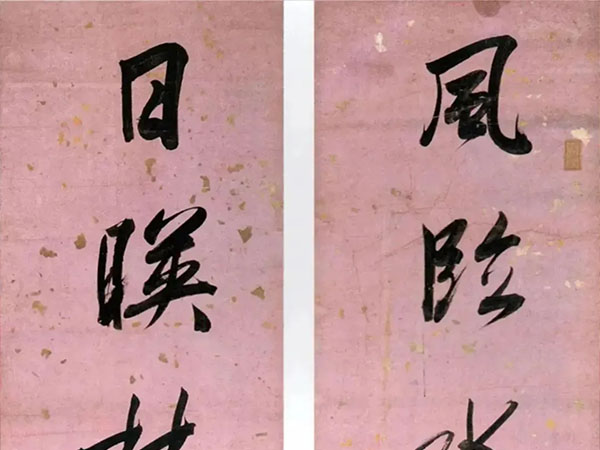 風臨
日暎